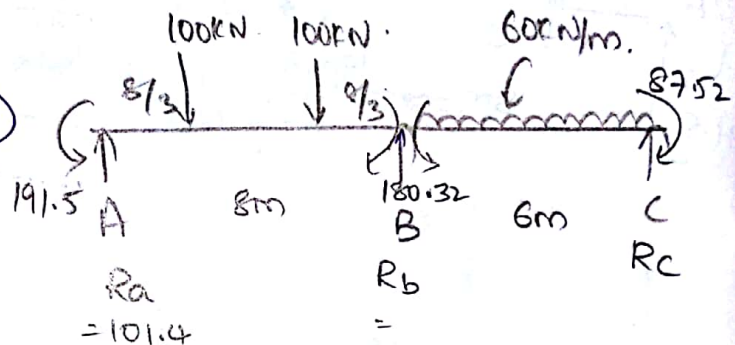 100KN 100KN. 60KN/m.
8/3 8/3 87.52
191.5 A 8m 180.32 B 6m C
Ra Rb Rc
=101.4 =